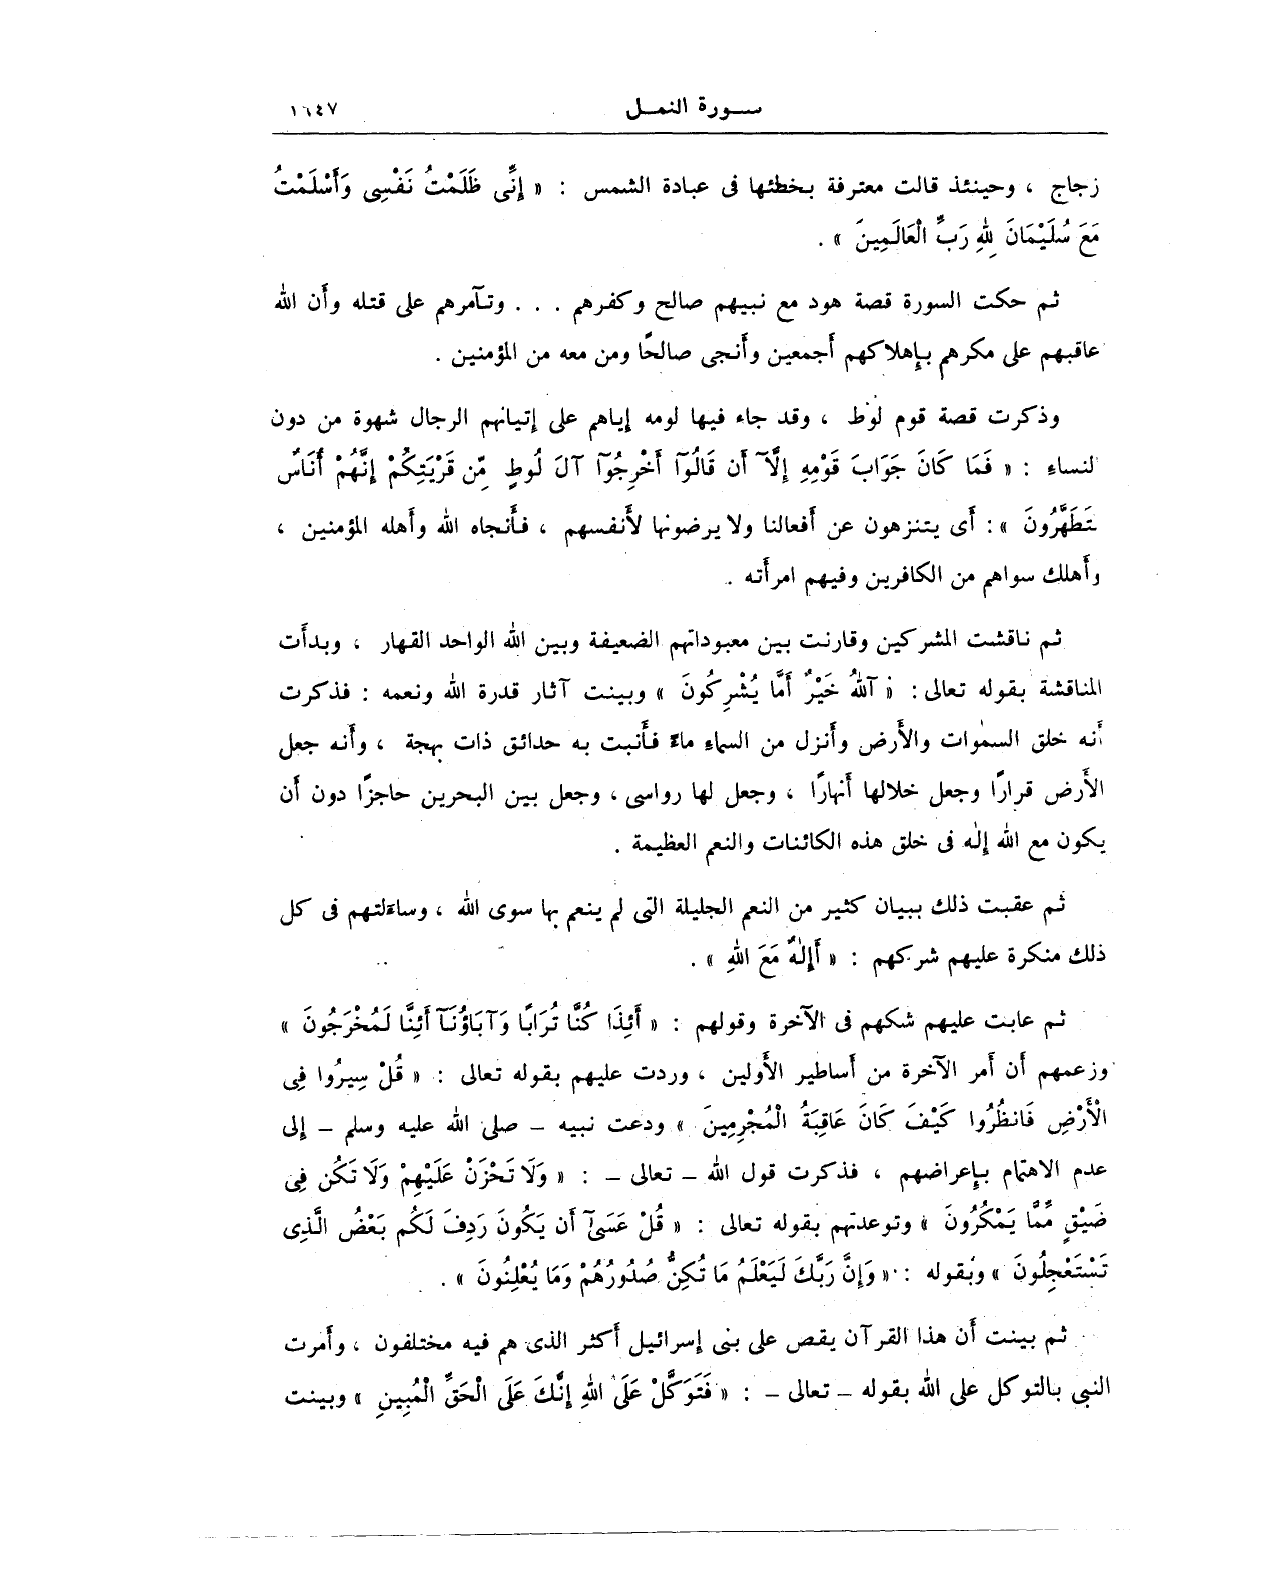 سورة النمل ١٦٤٧
زجاج ، وحينئذ قالت معترفة بخطئها فى عبادة الشمس : « إِنِّى ظَلَمْتُ نَفْسِى وَأَسْلَمْتُ
مَعَ سُلَيْمَانَ لِلهِ رَبِّ الْعَالَمِينَ » .
ثم حكت السورة قصة هود مع نبيهم صالح وكفرهم . . . وتآمرهم على قتله وأن الله
عاقبهم على مكرهم بإهلاكهم أجمعين وأنجى صالحًا ومن معه من المؤمنين .
وذكرت قصة قوم لوط ، وقد جاء فيها لومه إياهم على إتيانهم الرجال شهوة من دون
لنساء : « فَمَا كَانَ جَوَابَ قَوْمِهِ إِلَّآ أَن قَالُوآ أَخْرِجُوآ آلَ لُوطٍ مِّن قَرْيَتِكُمْ إِنَّهُمْ أُنَاسٌ
يَتَطَهَّرُونَ » : أى يتنزهون عن أفعالنا ولا يرضونها لأنفسهم ، فأنجاه الله وأهله المؤمنين ،
وأهلك سواهم من الكافرين وفيهم امرأته .
ثم ناقشت المشركين وقارنت بين معبوداتهم الضعيفة وبين الله الواحد القهار ، وبدأت
المناقشة بقوله تعالى : « آللهُ خَيْرٌ أَمَّا يُشْرِكُونَ » وبينت آثار قدرة الله ونعمه : فذكرت
أنه خلق السمٰوات والأرض وأنزل من السماء ماءً فأنبت به حدائق ذات بهجة ، وأنه جعل
الأرض قرارًا وجعل خلالها أنهارًا ، وجعل لها رواسى ، وجعل بين البحرين حاجزًا دون أن
يكون مع الله إلٰه فى خلق هذه الكائنات والنعم العظيمة .
ثم عقبت ذلك ببيان كثير من النعم الجليلة التى لم ينعم بها سوى الله ، وساءلتهم فى كل
ذلك منكرة عليهم شركهم : « أَإِلٰهٌ مَعَ اللهِ » .
ثم عابت عليهم شكهم فى الآخرة وقولهم : « أَئِذَا كُنَّا تُرَابًا وَآبَاؤُنَآ أَئِنَّا لَمُخْرَجُونَ »
وزعمهم أن أمر الآخرة من أساطير الأولين ، وردت عليهم بقوله تعالى : « قُلْ سِيرُوا فِى
الْأَرْضِ فَانظُرُوا كَيْفَ كَانَ عَاقِبَةُ الْمُجْرِمِينَ » ودعت نبيه – صلى الله عليه وسلم – إلى
عدم الاهتمام بإعراضهم ، فذكرت قول الله – تعالى – : « وَلَا تَحْزَنْ عَلَيْهِمْ وَلَا تَكُن فِى
ضَيْقٍ مِّمَّا يَمْكُرُونَ » وتوعدتهم بقوله تعالى : « قُلْ عَسَىٰٓ أَن يَكُونَ رَدِفَ لَكُم بَعْضُ الَّذِى
تَسْتَعْجِلُونَ » وبقوله : « وَإِنَّ رَبَّكَ لَيَعْلَمُ مَا تُكِنُّ صُدُورُهُمْ وَمَا يُعْلِنُونَ » .
ثم بينت أن هذا القرآن يقص على بنى إسرائيل أكثر الذى هم فيه مختلفون ، وأمرت
النبى بالتوكل على الله بقوله – تعالى – : « فَتَوَكَّلْ عَلَى اللهِ إِنَّكَ عَلَى الْحَقِّ الْمُبِينِ » وبينت